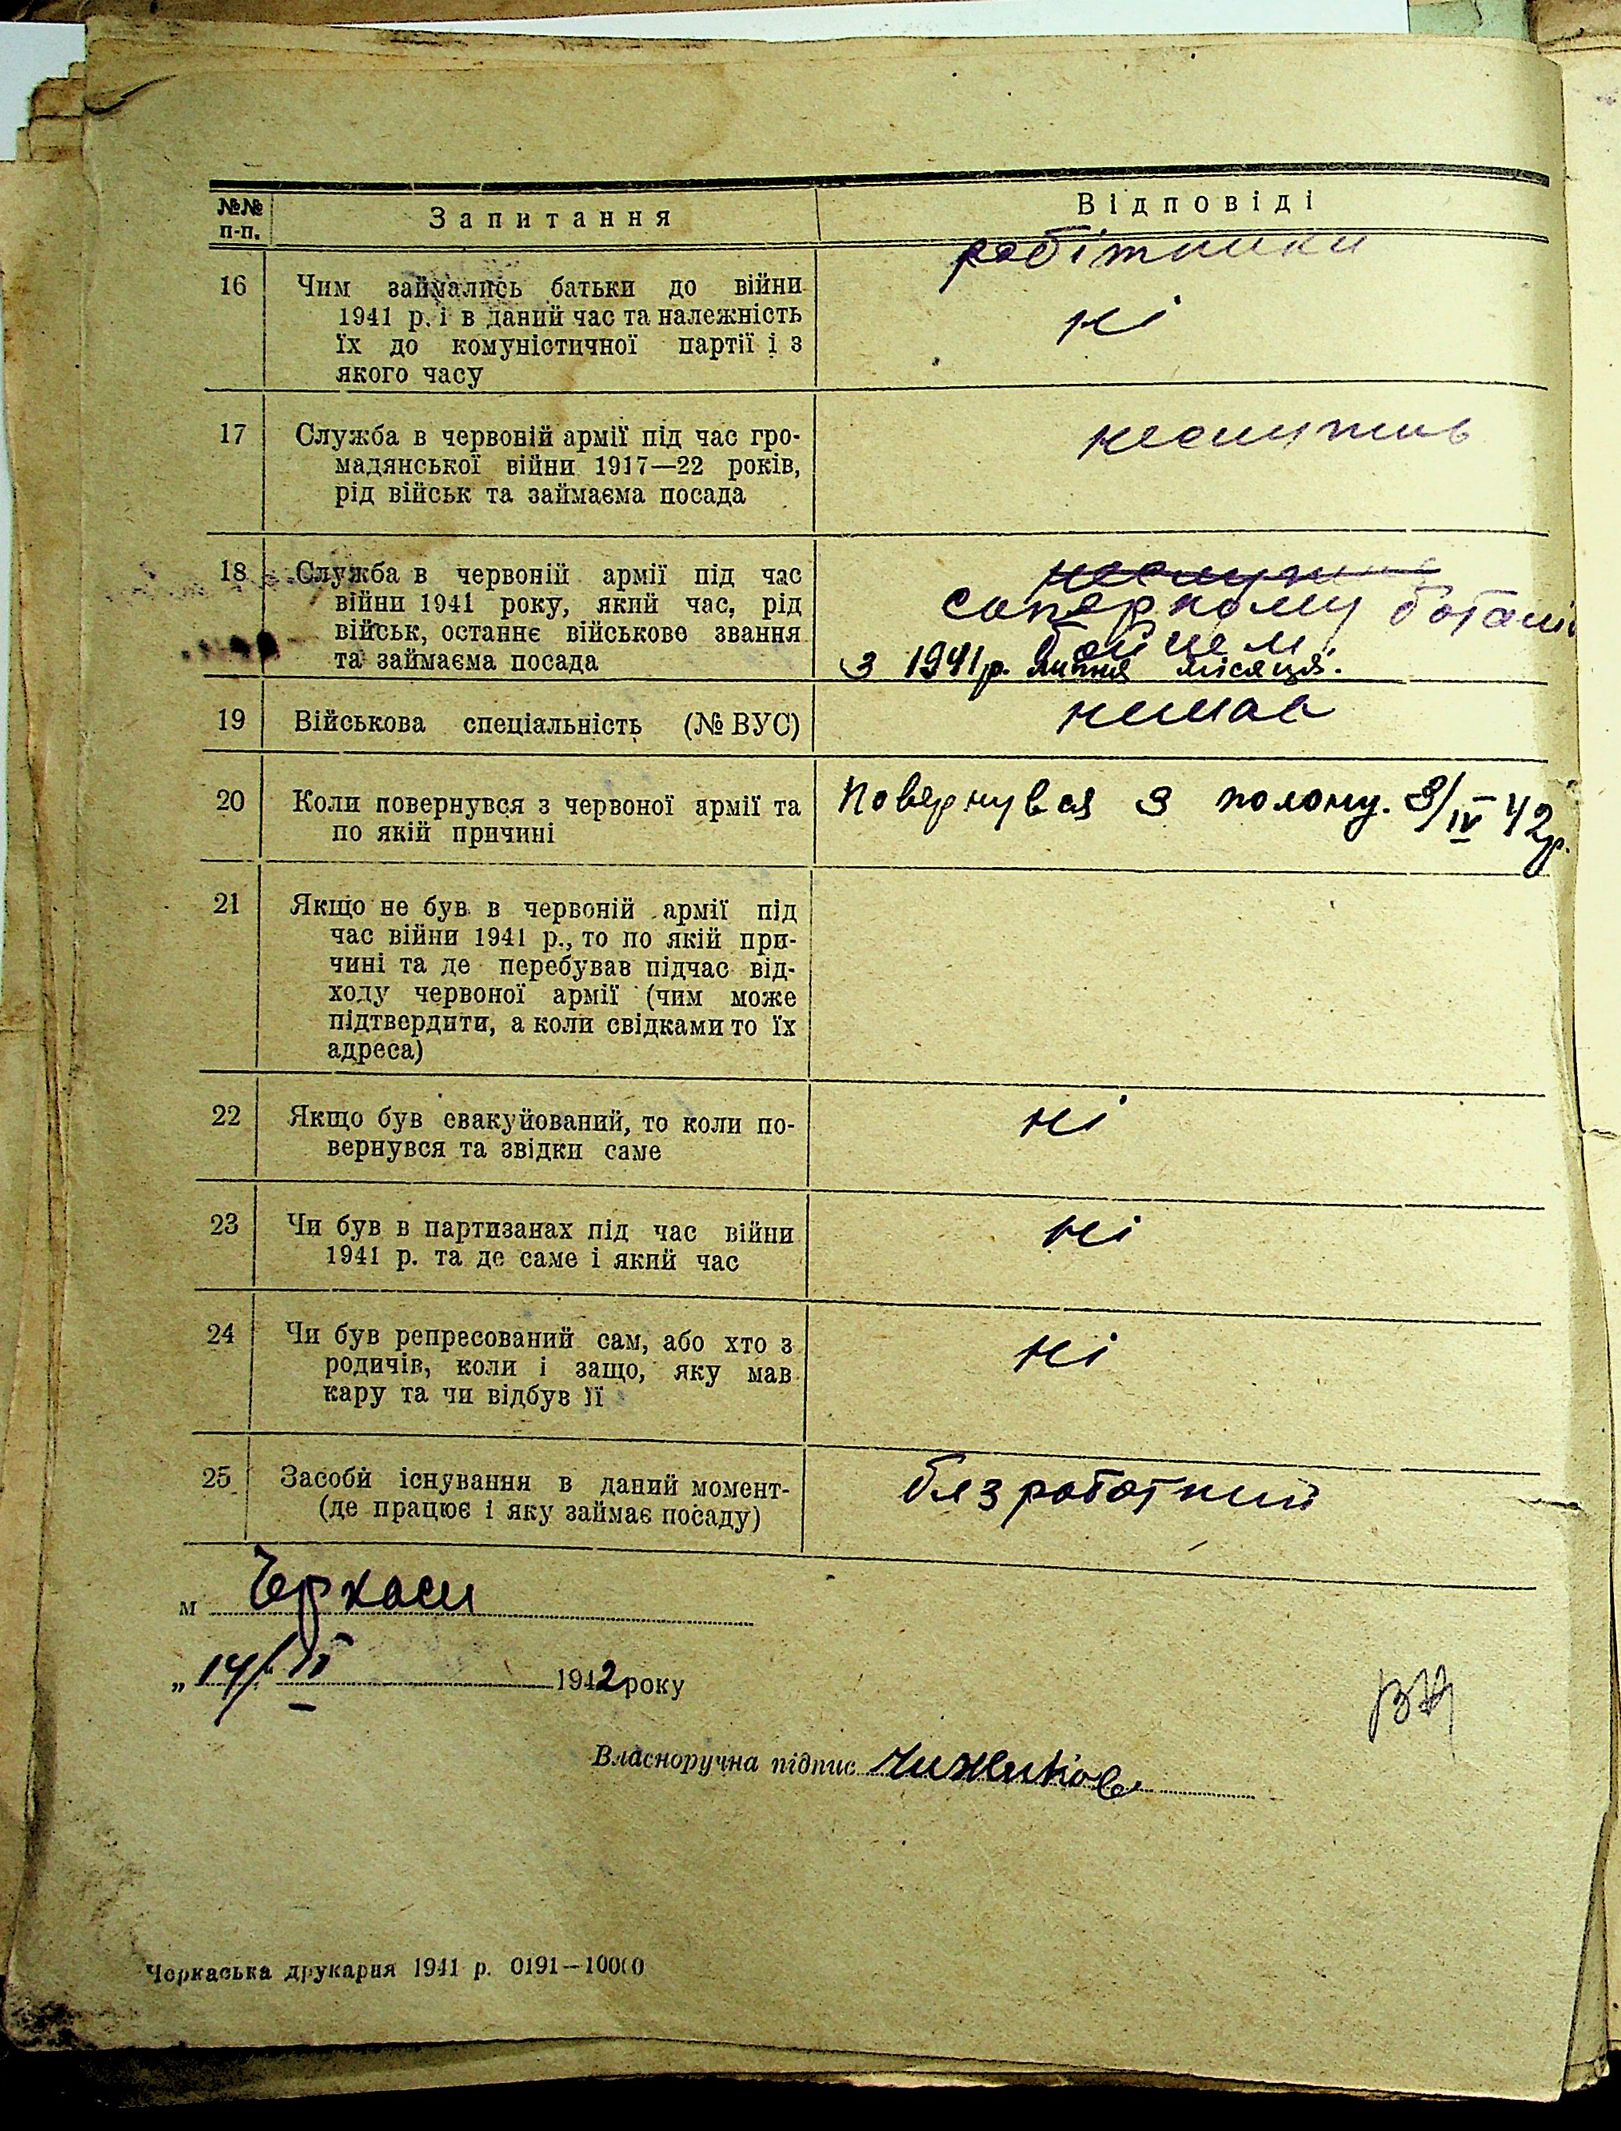 №№ п-п.
Запитання
Відповіді
16
Чим займались батьки до війни
1941 р. і в даний час та належність
їх до комуністичної партії і з
якого часу
робітники
ні
17
Служба в червоній армії під час гро-
мадянської війни 1917—22 років,
рід військ та займаєма посада
неслужив
18
Служба в червоній армії під час
війни 1941 року, який час, рід
військ, останнє військове звання
та займаєма посада
саперному
бойцем
з 1941р. липня місяця.
19
Військова спеціальність (№ ВУС)
нимав
20
Коли повернувся з червоної армії та
по якій причині
Повернувся з полону. 3/IV 42р.
21
Якщо не був в червоній армії під
час війни 1941 р., то по якій при-
чині та де перебував підчас від-
ходу червоної армії (чим може
підтвердити, а коли свідками то їх
адреса)
22
Якщо був евакуйований, то коли по-
вернувся та звідки саме
ні
23
Чи був в партизанах під час війни
1941 р. та де саме і який час
ні
24
Чи був репресований сам, або хто з
родичів, коли і защо, яку мав
кару та чи відбув її
ні
25
Засоби існування в даний момент-
(де працює і яку займає посаду)
бязработний
м Черкаси
„ 14/ 1942 року
Власноручна підпис Чижиков
Черкаська друкарня 1941 р. 0191—10000